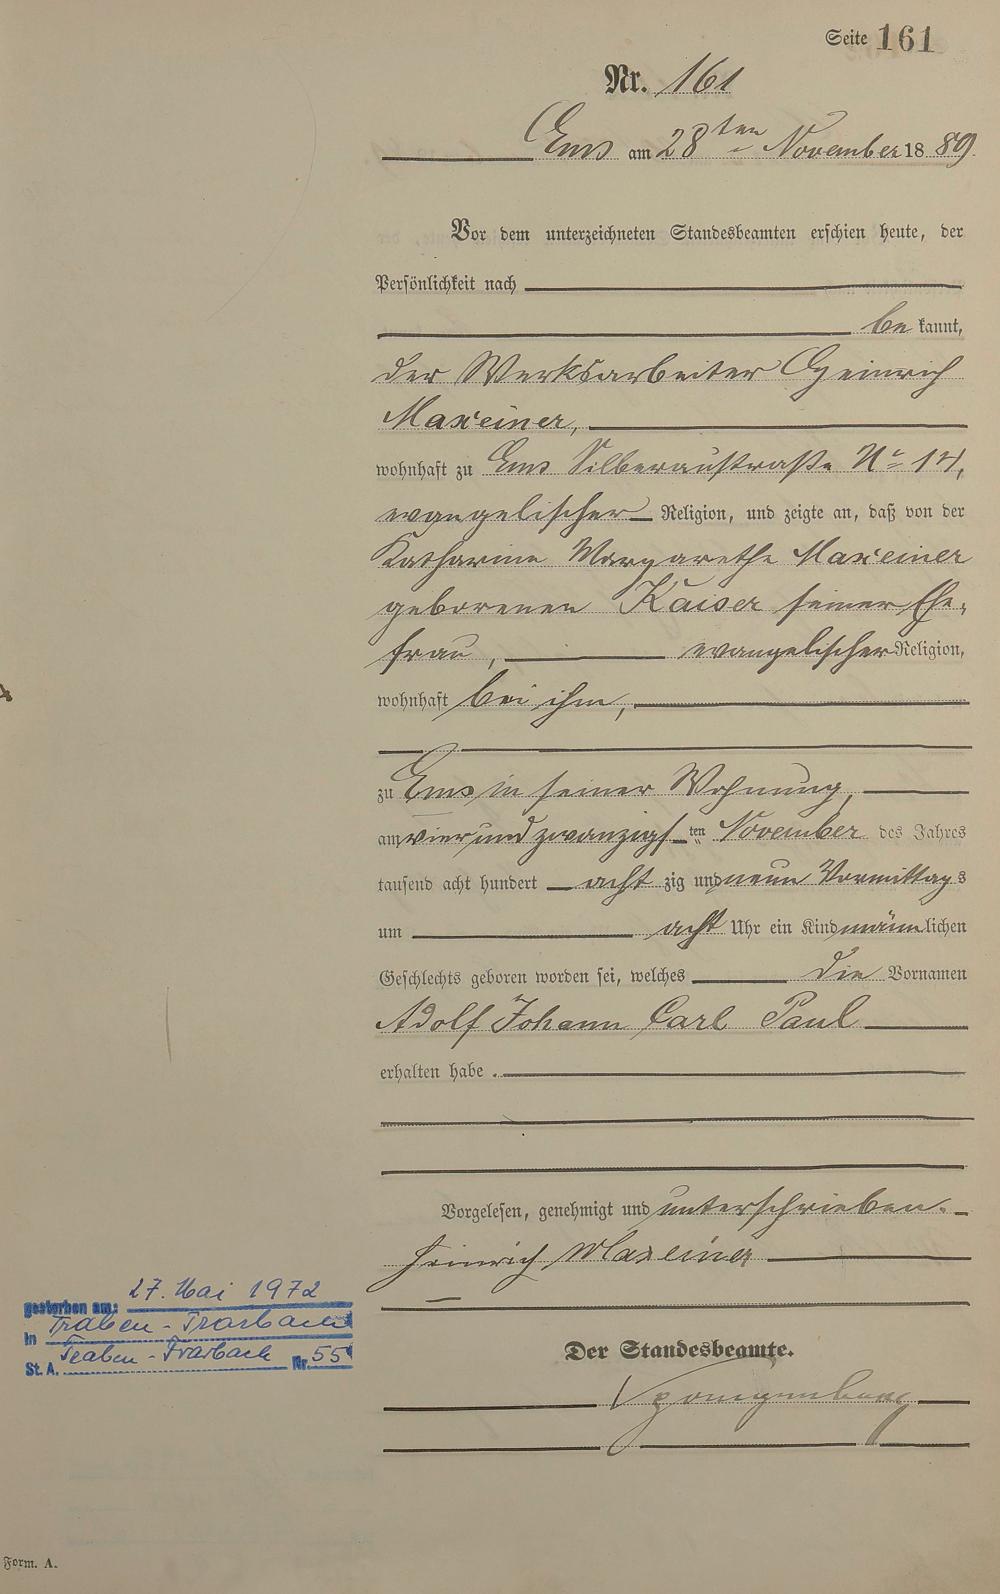 Seite 161
Nr. 161
Ems am 28ten November 1889
Vor dem unterzeichneten Standesbeamten erschien heute, der
Persönlichkeit nach
bekannt,
der Werksarbeiter Heinrich
Maxeiner,
wohnhaft zu Ems Silberaustraße No 14,
evangelischer Religion, und zeigte an, daß von der
Katharine Margarethe Maxeiner
geborenen Kaiser seiner Ehe-
frau, evangelischer Religion,
wohnhaft bei ihm,
zu Ems in seiner Wohnung,
am vier und zwanzigsten November des Jahres
tausend acht hundert achtzig und neun Vormittags
um acht Uhr ein Kind männlichen
Geschlechts geboren worden sei, welches die Vornamen
Adolf Johann Carl Paul
erhalten habe.
Vorgelesen, genehmigt und unterschrieben.
Heinrich Maxeiner
Der Standesbeamte.
gestorben am: 27. Mai 1972
in Traben-Trarbach
St. A. Traben-Trarbach Nr. 55
Form. A.